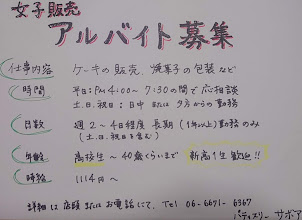 女子販売
アルバイト募集
仕事内容 ケーキの販売 焼菓子の包装 など
時間 平日:PM4:00〜7:30の間で応相談
土.日.祝:日中 または 夕方からの勤務
日数 週2〜4日程度 長期(1年以上)勤務のみ
(土.日.祝日を含む)
年齢 高校生〜40歳ぐらいまで 新高1生歓迎!!
時給 1114円〜
詳細は店頭またはお電話にて. Tel 06-6671-6367
パティスリー サボア